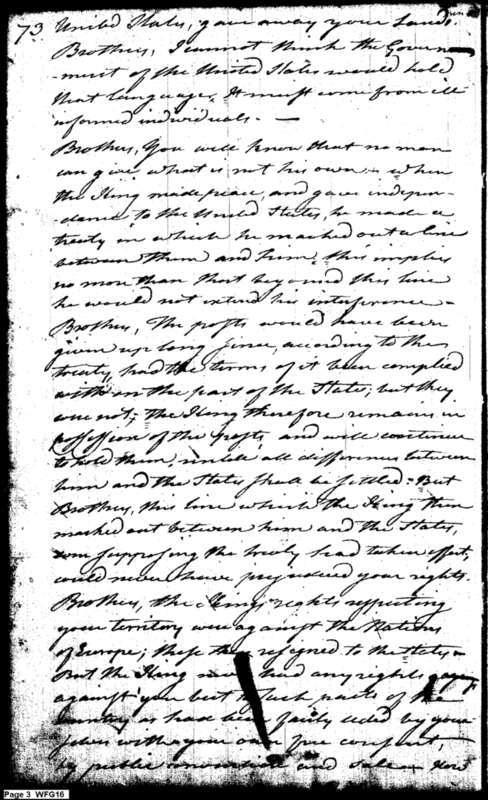 73 United States, gave away your Lands.
Brothers, I cannot think the Govern-
-ment of the United States would hold
that language. It must come from ill
informed individuals. —
Brothers, You well know that no man
can give what is not his own. When
the King made peace, and gave indepen-
-dence to the United States, he made a
treaty in which he marked out a line
between them and him; this implies
no more than that beyond this line
he would not extend his interference —
Brothers, The posts would have been
given up long since, according to the
treaty, had the terms of it been complied
with on the part of the States; but they
were not; the King therefore remains in
possession of the posts, and will continue
to hold them, until all differences between
him and the States shall be settled — But
Brothers, this line which the King thus
marked out between him and the States,
even supposing the treaty had taken effect,
could never have prejudiced your rights.
Brothers, the King's rights respecting
your territory were against the Nations
of Europe; these he resigned to the States —
But the King never had any rights
against you but to such parts of the
Country as had been fairly ceded by your
selves with your own free consent,
by public and sale
Page 3 WFG16